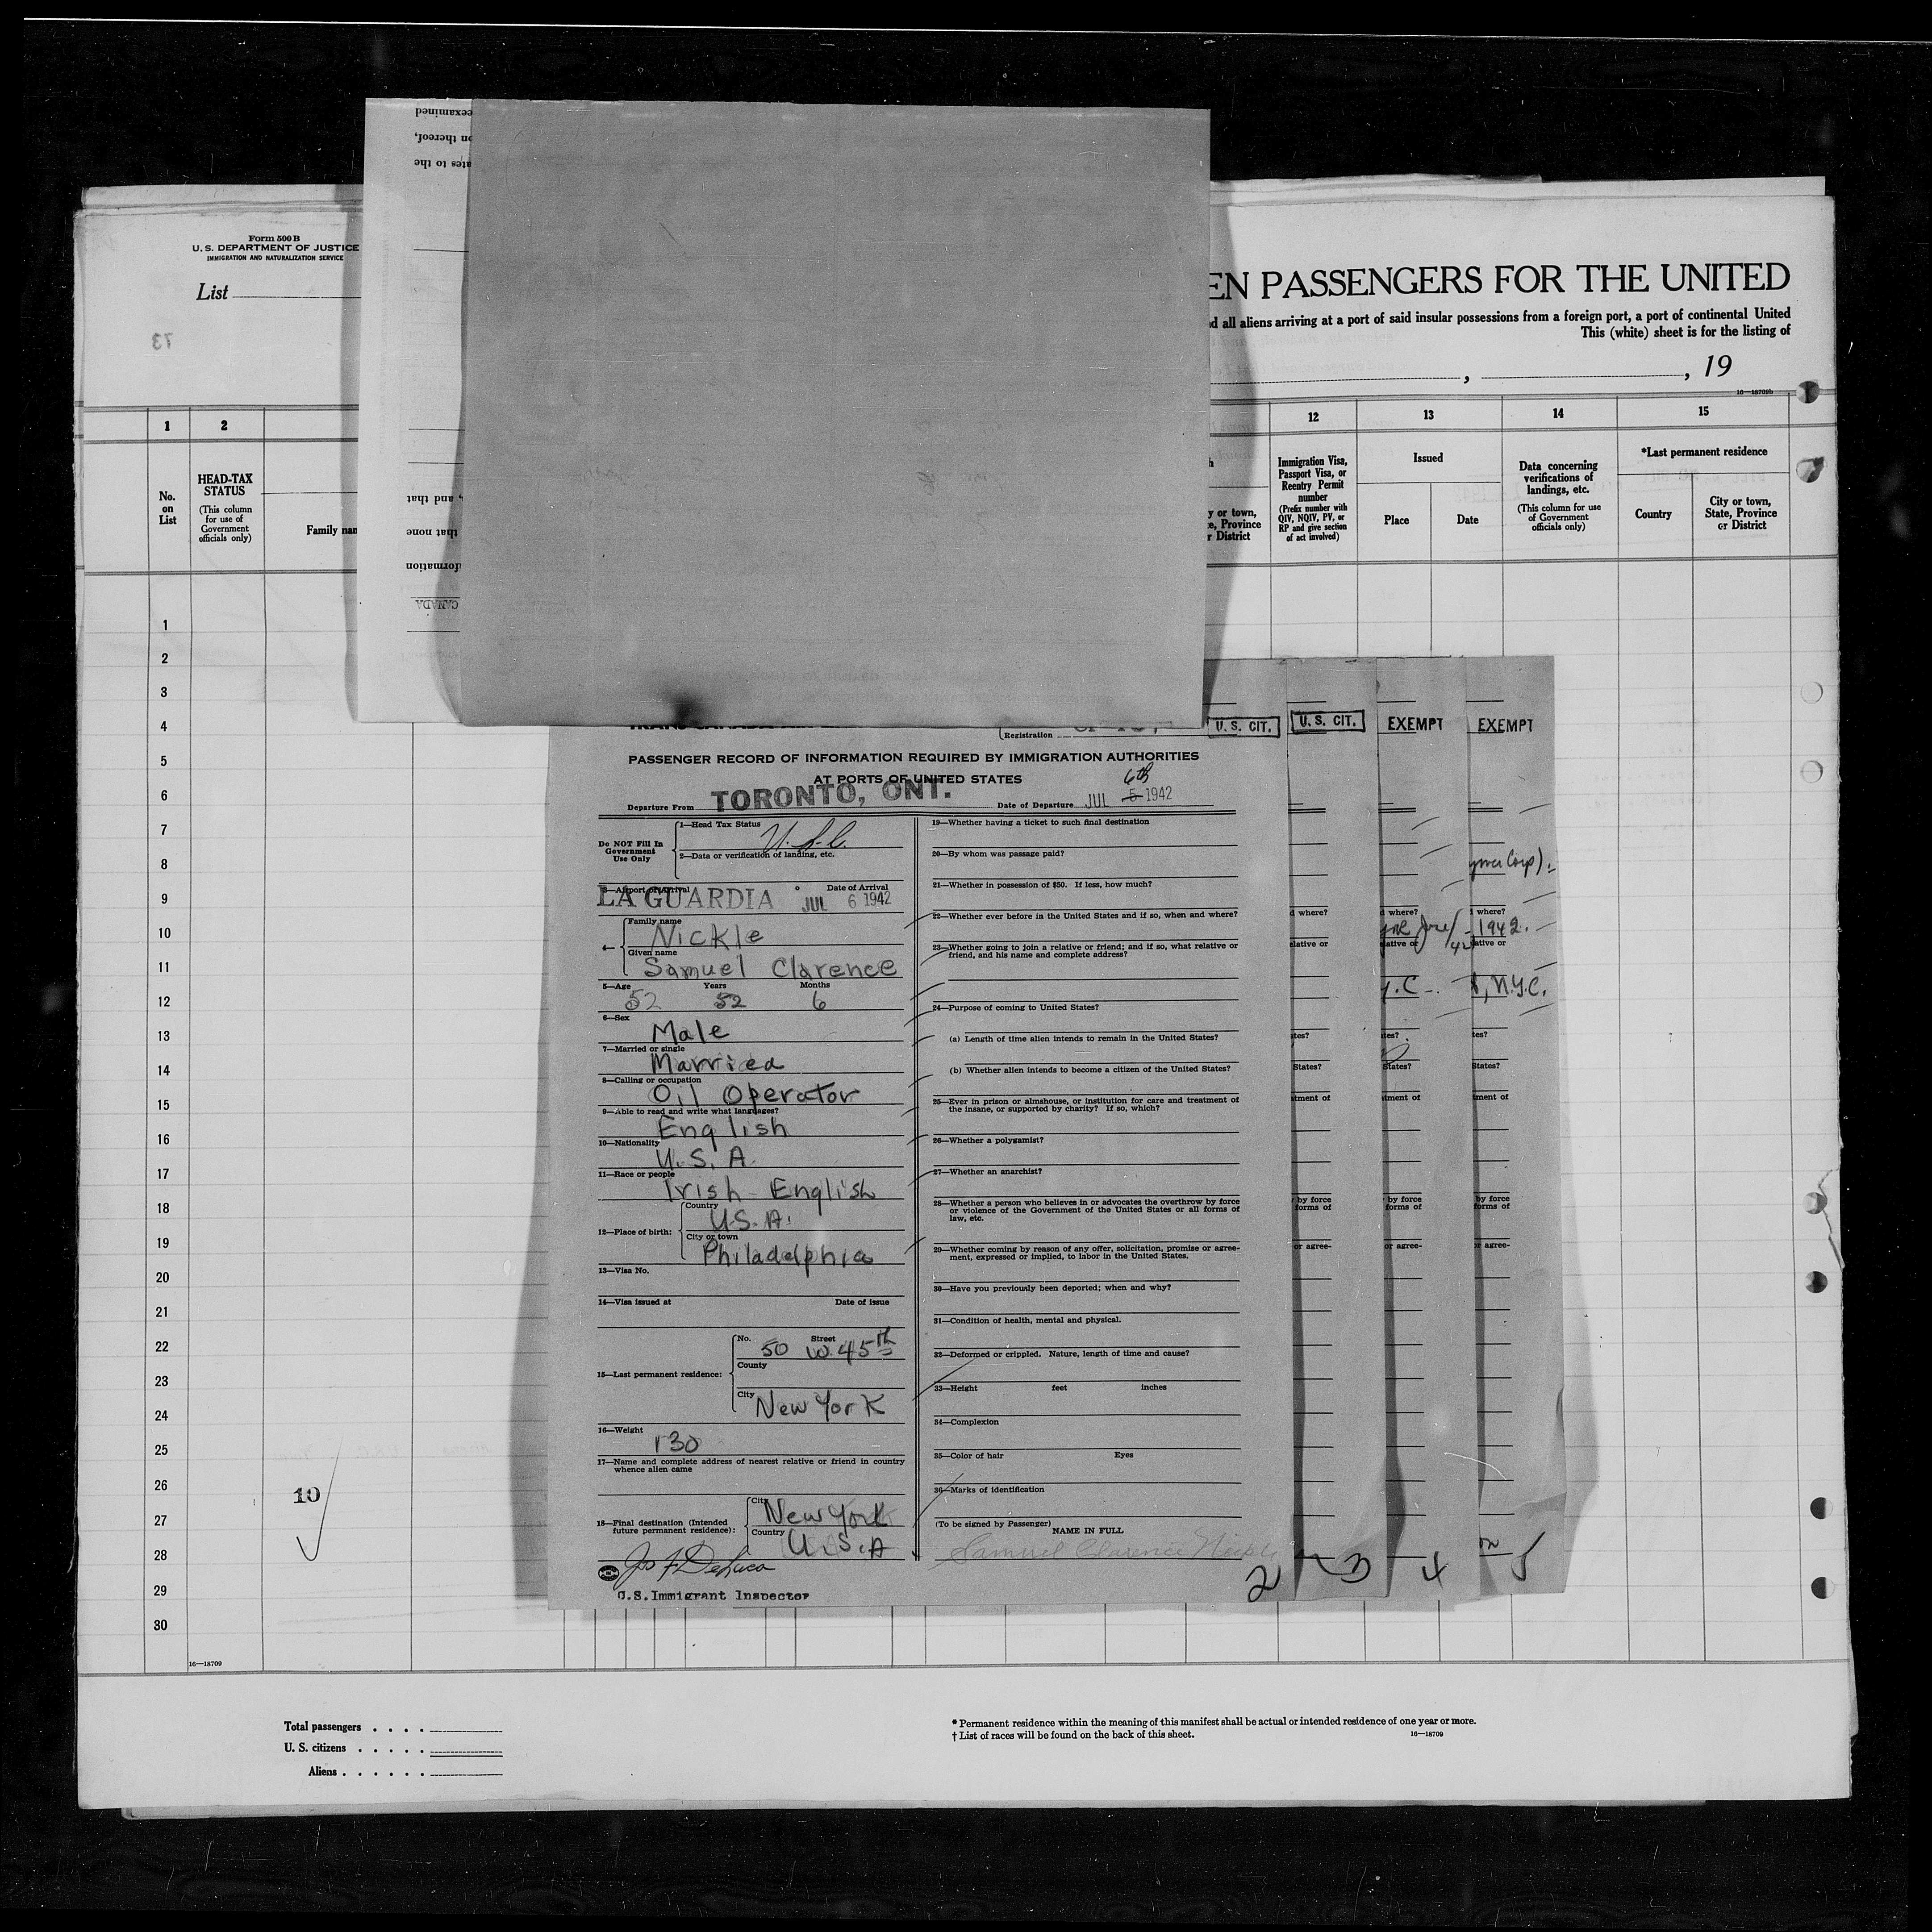 Form 500 B
U. S. DEPARTMENT OF JUSTICE
IMMIGRATION AND NATURALIZATION SERVICE
List
73
eexamined
on thereof,
ates to the
, and that
that none
formation
CANADA
EN PASSENGERS FOR THE UNITED
d all aliens arriving at a port of said insular possessions from a foreign port, a port of continental United
This (white) sheet is for the listing of
, , 19
16—18709b
1 2 12 13 14 15
No. on List
HEAD-TAX STATUS
(This column for use of Government officials only)
Family nam
y or town,
e, Province
r District
Immigration Visa, Passport Visa, or Reentry Permit number
(Prefix number with QIV, NQIV, PV, or RP and give section of act involved)
Issued
Place Date
Data concerning verifications of landings, etc.
(This column for use of Government officials only)
*Last permanent residence
Country
City or town, State, Province or District
1
2
3
4
5
6
7
8
9
10
11
12
13
14
15
16
17
18
19
20
21
22
23
24
25
26
27
28
29
30
10
16—18709
Registration
U. S. CIT.
U. S. CIT.
EXEMPT
EXEMPT
PASSENGER RECORD OF INFORMATION REQUIRED BY IMMIGRATION AUTHORITIES
AT PORTS OF UNITED STATES
Departure From TORONTO, ONT. Date of Departure JUL 5 1942
6th
Do NOT Fill In Government Use Only
1—Head Tax Status
U.S.C.
2—Data or verification of landing, etc.
3—Airport of Arrival Date of Arrival
LA GUARDIA JUL 6 1942
4— Family name
Nickle
Given name
Samuel Clarence
5—Age Years Months
52 52 6
6—Sex
Male
7—Married or single
Married
8—Calling or occupation
Oil Operator
9—Able to read and write what languages?
English
10—Nationality
U.S.A.
11—Race or people
Irish English
12—Place of birth: Country
U.S.A.
City or town
Philadelphia
13—Visa No.
14—Visa issued at Date of issue
15—Last permanent residence: No. Street
50 W. 45th
County
City
New York
16—Weight
130
17—Name and complete address of nearest relative or friend in country
whence alien came
18—Final destination (Intended
future permanent residence): City
New York
Country
U.S.A
Jos F DeLuca
U.S. Immigrant Inspector
19—Whether having a ticket to such final destination
20—By whom was passage paid?
21—Whether in possession of $50. If less, how much?
22—Whether ever before in the United States and if so, when and where?
23—Whether going to join a relative or friend; and if so, what relative or
friend, and his name and complete address?
24—Purpose of coming to United States?
(a) Length of time alien intends to remain in the United States?
(b) Whether alien intends to become a citizen of the United States?
25—Ever in prison or almshouse, or institution for care and treatment of
the insane, or supported by charity? If so, which?
26—Whether a polygamist?
27—Whether an anarchist?
28—Whether a person who believes in or advocates the overthrow by force
or violence of the Government of the United States or all forms of
law, etc.
29—Whether coming by reason of any offer, solicitation, promise or agree-
ment, expressed or implied, to labor in the United States.
30—Have you previously been deported; when and why?
31—Condition of health, mental and physical.
32—Deformed or crippled. Nature, length of time and cause?
33—Height feet inches
34—Complexion
35—Color of hair Eyes
36—Marks of identification
(To be signed by Passenger)
NAME IN FULL
Samuel Clarence Nickle
2
3
4
5
d where?
elative or
tes?
States?
tment of
by force
forms of
or agree-
d where?
lative or
Y.C.
tes?
States?
tment of
by force
forms of
or agree-
Corp).
where?
1942.
ative or
N.Y.C.
tes?
States?
ment of
by force
forms of
or agree-
Total passengers . . . .
U. S. citizens . . . . .
Aliens . . . . . .
* Permanent residence within the meaning of this manifest shall be actual or intended residence of one year or more.
† List of races will be found on the back of this sheet.
16—18709